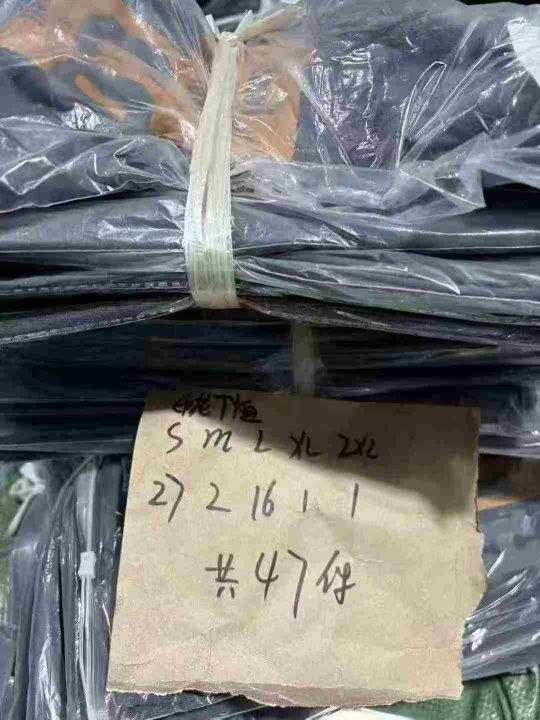 S M L XL 2XL
27 2 16 1 1
共47件